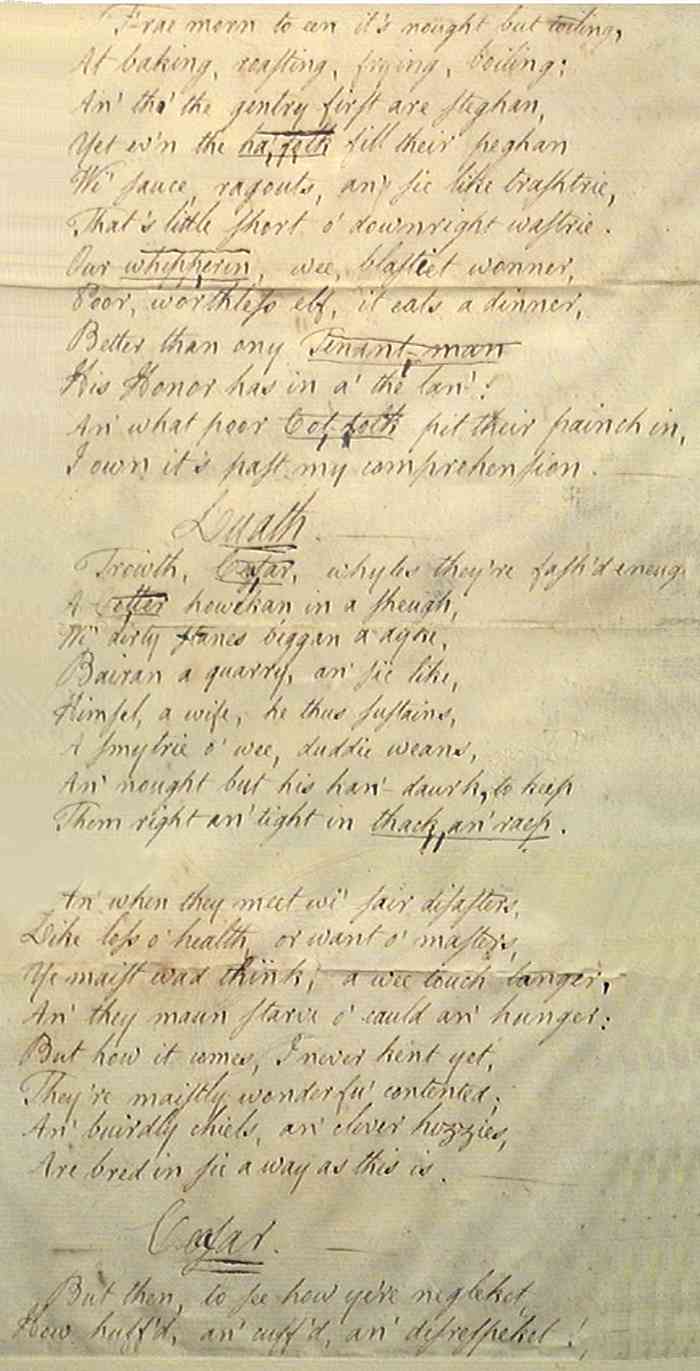 Frae morn to een it's nought but toiling,
At baking, roasting, frying, boiling:
An' tho' the gentry first are steghan,
Yet ev'n the ha' folk fill their peghan
Wi' sauce, ragouts, an' sic like trashtrie,
That's little short o' downright wastrie.
Our whipperin, wee, blastiet wonner,
Poor, worthless elf, it eats a dinner,
Better than ony Tenant-man
His Honor has in a' the lan'!
An' what poor Cot-folk pit their painch in,
I own it's past my comprehension.
Luath.
Trowth, Cæsar, whyles they're fash'd eneugh
A Cotter howckan in a sheugh,
Wi' dirty stanes biggan a dyke,
Bairan a quarry, an' sic like,
Himsel, a wife, he thus sustains,
A smytrie o' wee, duddie weans,
An' nought but his han'-daurk, to keep
Them right an' tight in thack an' raep.
An' when they meet wi' sair disasters,
Like loss o' health, or want o' masters,
Ye maist wad think, a wee touch langer,
An' they maun starve o' cauld an' hunger:
But how it comes, I never kent yet,
They're maistly wonderfu' contented;
An' buirdly chiels, an' clever hizzies,
Are bred in sic a way as this is.
Cæsar.
But then, to see how ye're negleket,
How huff'd, an' cuff'd, an' disrespeket!